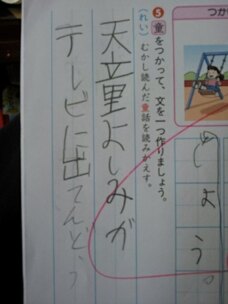 つか
じょう。
❺童をつかって、文を一つ作りましょう。
(れい)むかし読んだ童話を読みかえす。
天童よしみが
テレビに出てんどう